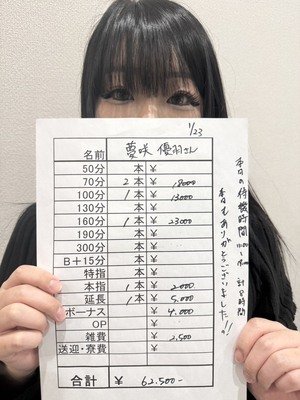 1/23
名前 夢咲 優羽さん
50分 本 ¥
70分 2本 ¥ 18000
100分 1本 ¥ 13000
130分 本 ¥
160分 1本 ¥ 23000
190分 本 ¥
300分 本 ¥
B+15分 本 ¥
特指 本 ¥
本指 1本 ¥ 2.000
延長 1本 ¥ 5.000
ボーナス ¥ 4.000
OP ¥
雑費 ¥ 2,500
送迎・寮費 ¥
合計 ¥ 62.500-
本日の待機時間 計8時間
今日もありがとうございました!!